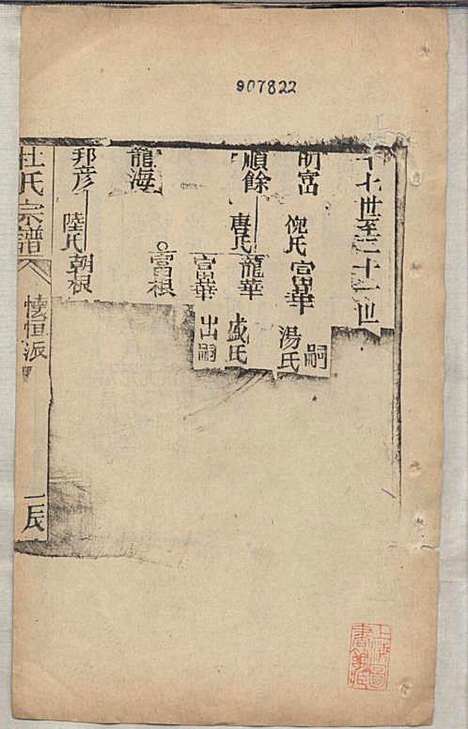 907822
十七世至二十一世
明富 倪氏 富華 嗣 湯氏
順餘 唐氏 龍華 盛氏
富華 出嗣
龍海 富根
邦彥 陸氏 朝根
杜氏宗譜 懷恒派 辰
上海圖書館藏